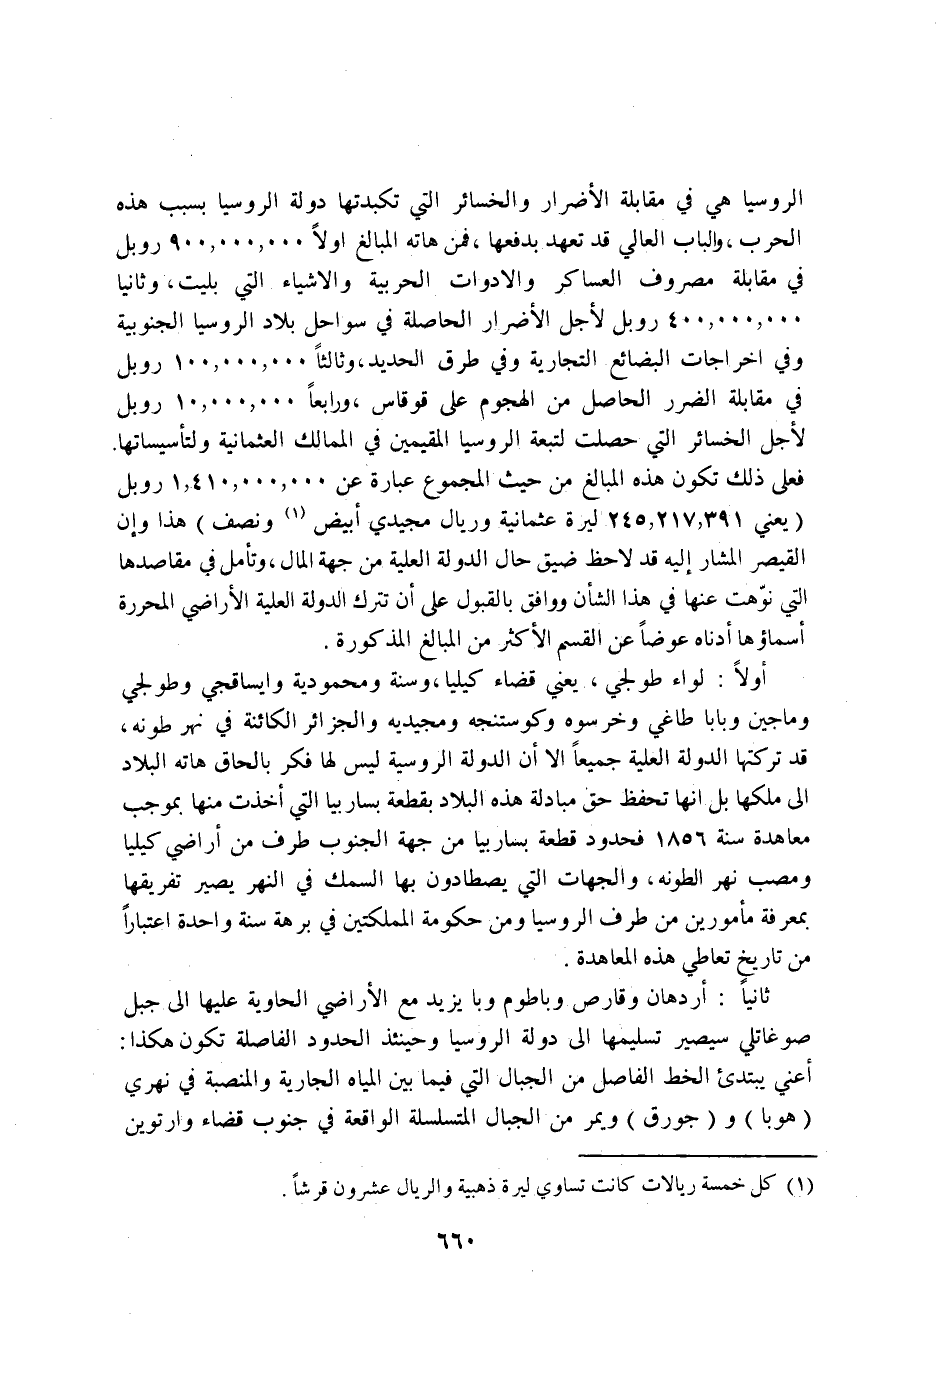 الروسيا هي في مقابلة الأضرار والخسائر التي تكبدتها دولة الروسيا بسبب هذه
الحرب ،والباب العالي قد تعهد بدفعها ،فمن هاته المبالغ اولاً ٩٠٠,٠٠٠,٠٠٠ روبل
في مقابلة مصروف العساكر والادوات الحربية والاشياء التي بليت، وثانيا
٤٠٠,٠٠٠,٠٠٠ روبل لأجل الأضرار الحاصلة في سواحل بلاد الروسيا الجنوبية
وفي اخراجات البضائع التجارية وفي طرق الحديد،وثالثاً ١٠٠,٠٠٠,٠٠٠ روبل
في مقابلة الضرر الحاصل من الهجوم على قوقاس ،ورابعاً ١٠,٠٠٠,٠٠٠ روبل
لأجل الخسائر التي حصلت لتبعة الروسيا المقيمين في الممالك العثمانية ولتأسيساتها.
فعلى ذلك تكون هذه المبالغ من حيث المجموع عبارة عن ١,٤١٠,٠٠٠,٠٠٠ روبل
( يعني ٢٤٥,٢١٧,٣٩١ ليرة عثمانية وريال مجيدي أبيض (١) ونصف ) هذا وإن
القيصر المشار إليه قد لاحظ ضيق حال الدولة العلية من جهة المال ،وتأمل في مقاصدها
التي نوّهت عنها في هذا الشأن ووافق بالقبول على أن تترك الدولة العلية الأراضي المحررة
أسماؤها أدناه عوضاً عن القسم الأكثر من المبالغ المذكورة .
أولاً : لواء طولجي ، يعني قضاء كيليا ،وسنة ومحمودية وايساقجي وطولجي
وماجين وبابا طاغي وخرسوه وكوستنجه ومجيديه والجزائر الكائنة في نهر طونه ،
قد تركتها الدولة العلية جميعاً الا أن الدولة الروسية ليس لها فكر بالحاق هاته البلاد
الى ملكها بل انها تحفظ حق مبادلة هذه البلاد بقطعة بساربيا التي أخذت منها بموجب
معاهدة سنة ١٨٥٦ فحدود قطعة بساربيا من جهة الجنوب طرف من أراضي كيليا
ومصب نهر الطونه، والجهات التي يصطادون بها السمك في النهر يصير تفريقها
بمعرفة مأمورين من طرف الروسيا ومن حكومة المملكتين في برهة سنة واحدة اعتباراً
من تاريخ تعاطي هذه المعاهدة .
ثانياً : أردهان وقارص وباطوم وبا يزيد مع الأراضي الحاوية عليها الى جبل
صوغاتلي سيصير تسليمها الى دولة الروسيا وحينئذ الحدود الفاصلة تكون هكذا :
أعني يبتدئ الخط الفاصل من الجبال التي فيما بين المياه الجارية والمنصبة في نهري
( هوبا ) و ( جورق ) ويمر من الجبال المتسلسلة الواقعة في جنوب قضاء وارتوين
(١) كل خمسة ريالات كانت تساوي ليرة ذهبية والريال عشرون قرشاً .
٦٦٠